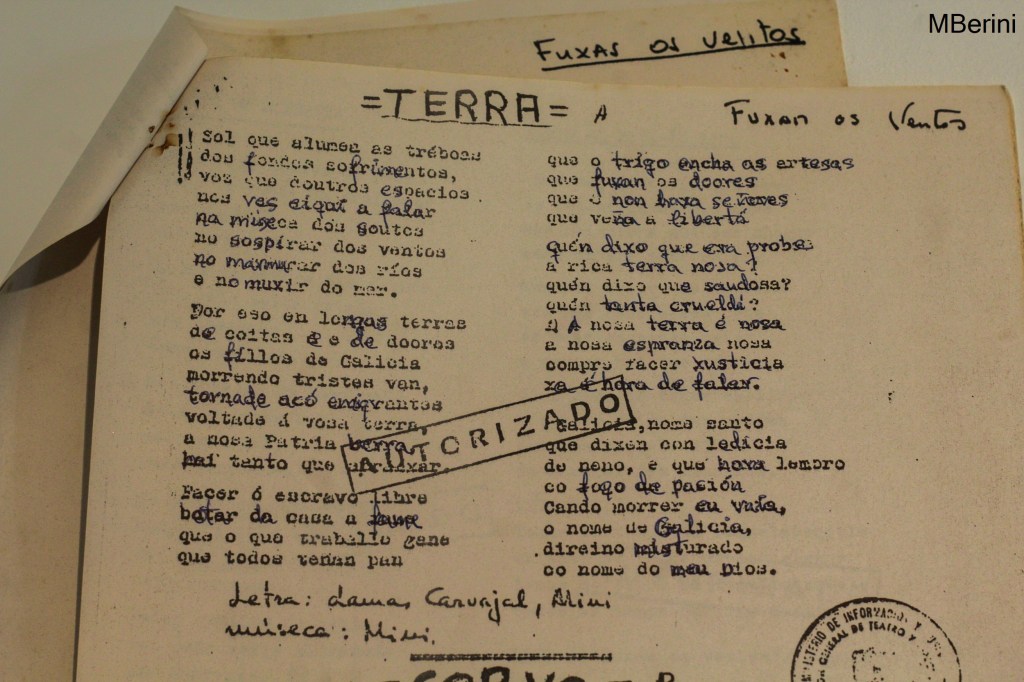 MBerini
FUXAS OS VeLitos
=TERRA= A
FUXAN OS Ventos
Sol que alumea as tréboas
dos fondos sofrimentos,
voz que doutros espacios
nos ves eiquí a falar
na múseca dos soutos
no sospirar dos ventos
no marmurar dos ríos
e no muxir do mar.
Por eso en longas terras
de coitas e de doores
os fillos de Galicia
morrendo tristes van,
tornade acó emigrantes
voltade á vosa terra,
a nosa Patria berra,
hai tanto que arranxar.
Facer ó escravo libre
botar da casa a fame
que o que traballe gane
que todos teñan pan
que o trigo encha as artesas
que fuxan os doores
que non haxa señores
que veña a libertá
Quén dixo que era probe
a rica terra nosa?
quén dixo que saudosa?
quén tanta crueldá?
A nosa terra é nosa
a nosa espranza nosa
compre facer xusticia
xa é hora de falar.
Galicia, nome santo
que dixen con ledicia
de neno, e que hova lembro
co fogo de pasión
Cando morrer eu vaia,
o nome de Galicia,
direino misturado
co nome do meu Dios.
AUTORIZADO
Letra: Lamas Carvajal, Mini
múseca: Mini.
MINISTERIO DE INFORMACION Y
GENERAL DE TEATRO Y